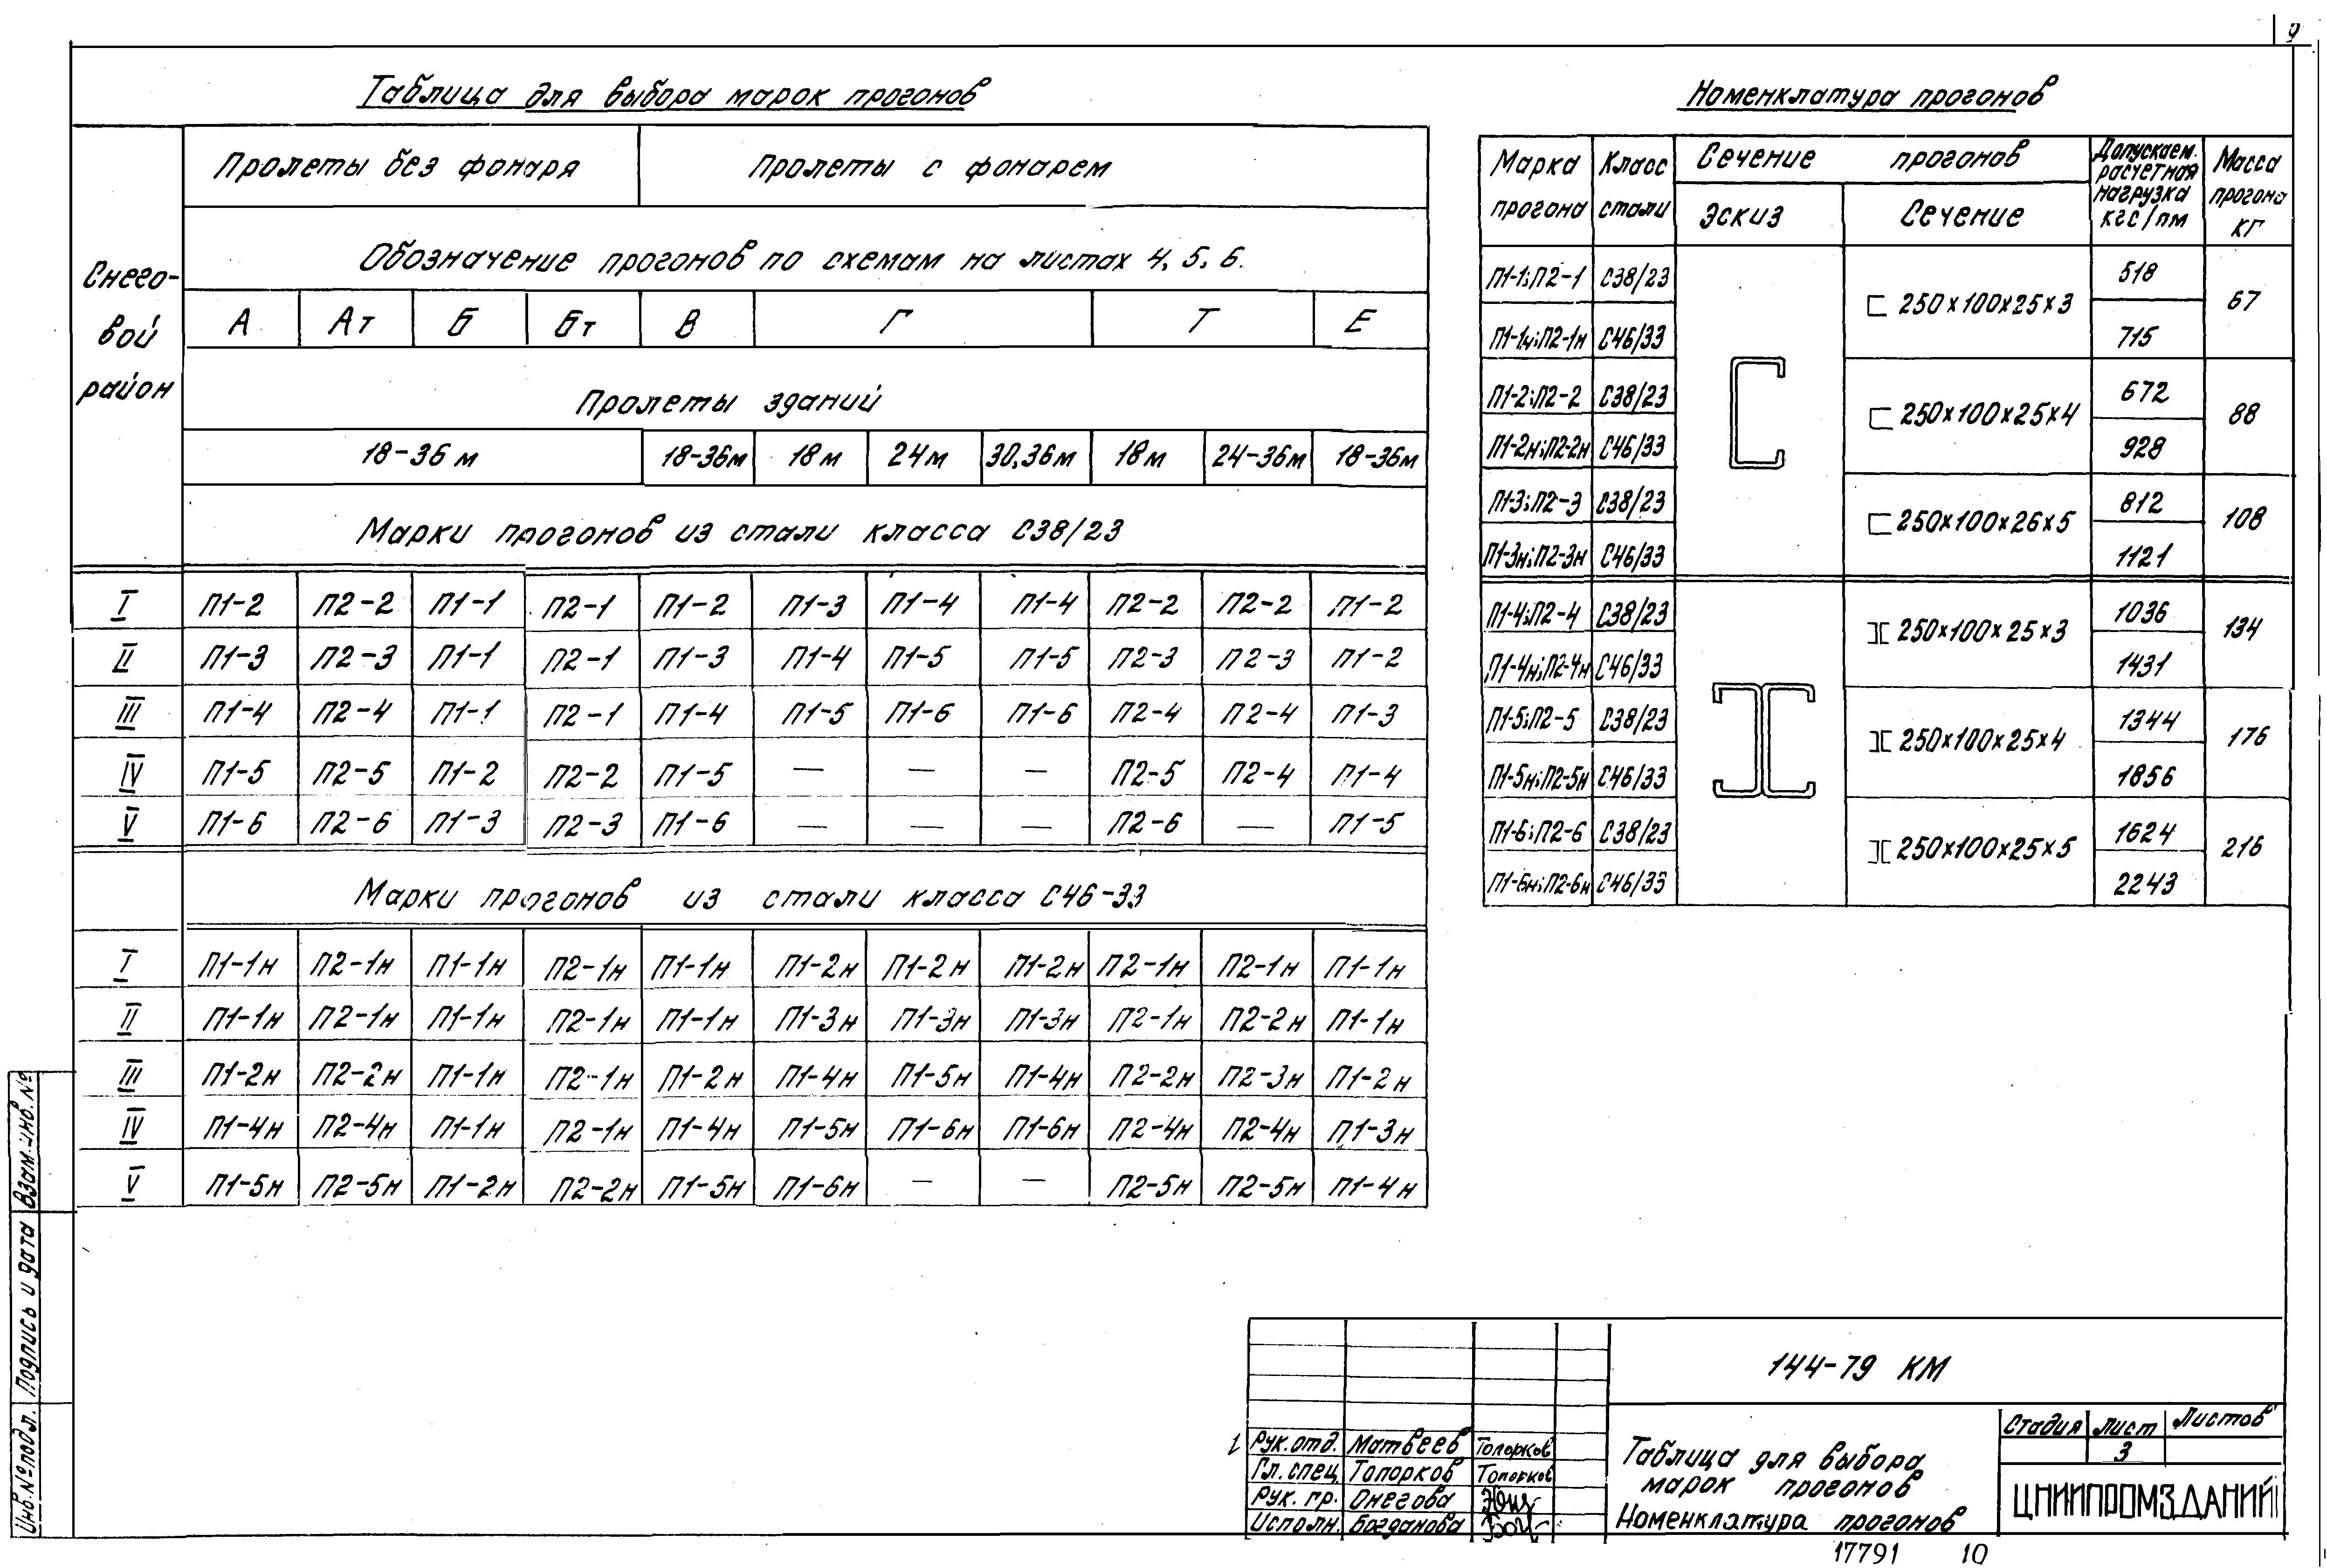 9
Таблица для выбора марок прогонов
Снего-
вой
район
Пролеты без фонаря Пролеты с фонарем
Обозначение прогонов по схемам на листах 4, 5, 6.
А Ат Б Бт В Г Т Е
Пролеты зданий
18-36 м 18-36м 18м 24м 30,36м 18м 24-36м 18-36м
Марки прогонов из стали класса С38/23
I П1-2 П2-2 П1-1 П2-1 П1-2 П1-3 П1-4 П1-4 П2-2 П2-2 П1-2
II П1-3 П2-3 П1-1 П2-1 П1-3 П1-4 П1-5 П1-5 П2-3 П2-3 П1-2
III П1-4 П2-4 П1-1 П2-1 П1-4 П1-5 П1-6 П1-6 П2-4 П2-4 П1-3
IV П1-5 П2-5 П1-2 П2-2 П1-5 — — — П2-5 П2-4 П1-4
V П1-6 П2-6 П1-3 П2-3 П1-6 — — — П2-6 — П1-5
Марки прогонов из стали класса С46-33
I П1-1н П2-1н П1-1н П2-1н П1-1н П1-2н П1-2н П1-2н П2-1н П2-1н П1-1н
II П1-1н П2-1н П1-1н П2-1н П1-1н П1-3н П1-3н П1-3н П2-1н П2-2н П1-1н
III П1-2н П2-2н П1-1н П2-1н П1-2н П1-4н П1-5н П1-4н П2-2н П2-3н П1-2н
IV П1-4н П2-4н П1-1н П2-1н П1-4н П1-5н П1-6н П1-6н П2-4н П2-4н П1-3н
V П1-5н П2-5н П1-2н П2-2н П1-5н П1-6н — — П2-5н П2-5н П1-4н
Номенклатура прогонов
Марка прогона
Класс стали
Сечение прогонов
Эскиз Сечение
Допускаем.
расчетная
нагрузка
кгс/пм
Масса
прогона
кг
П1-1;П2-1 С38/23 518
[ 250×100×25×3 67
П1-1н;П2-1н С46/33 715
П1-2;П2-2 С38/23 672
[ 250×100×25×4 88
П1-2н;П2-2н С46/33 928
П1-3;П2-3 С38/23 812
[ 250×100×26×5 108
П1-3н;П2-3н С46/33 1121
П1-4;П2-4 С38/23 1036
][ 250×100×25×3 134
П1-4н;П2-4н С46/33 1431
П1-5;П2-5 С38/23 1344
][ 250×100×25×4 176
П1-5н;П2-5н С46/33 1856
П1-6;П2-6 С38/23 1624
][ 250×100×25×5 216
П1-6н;П2-6н С46/33 2243
Инв.№подл. Подпись и дата Взам.инв.№
144-79 КМ
Рук.отд. Матвеев Топорков
Гл.спец. Топорков Топорков
Рук.гр. Онегова
Исполн. Богданова
Таблица для выбора
марок прогонов
Номенклатура прогонов
Стадия Лист Листов
3
ЦНИИПРОМЗДАНИЙ
17791 10